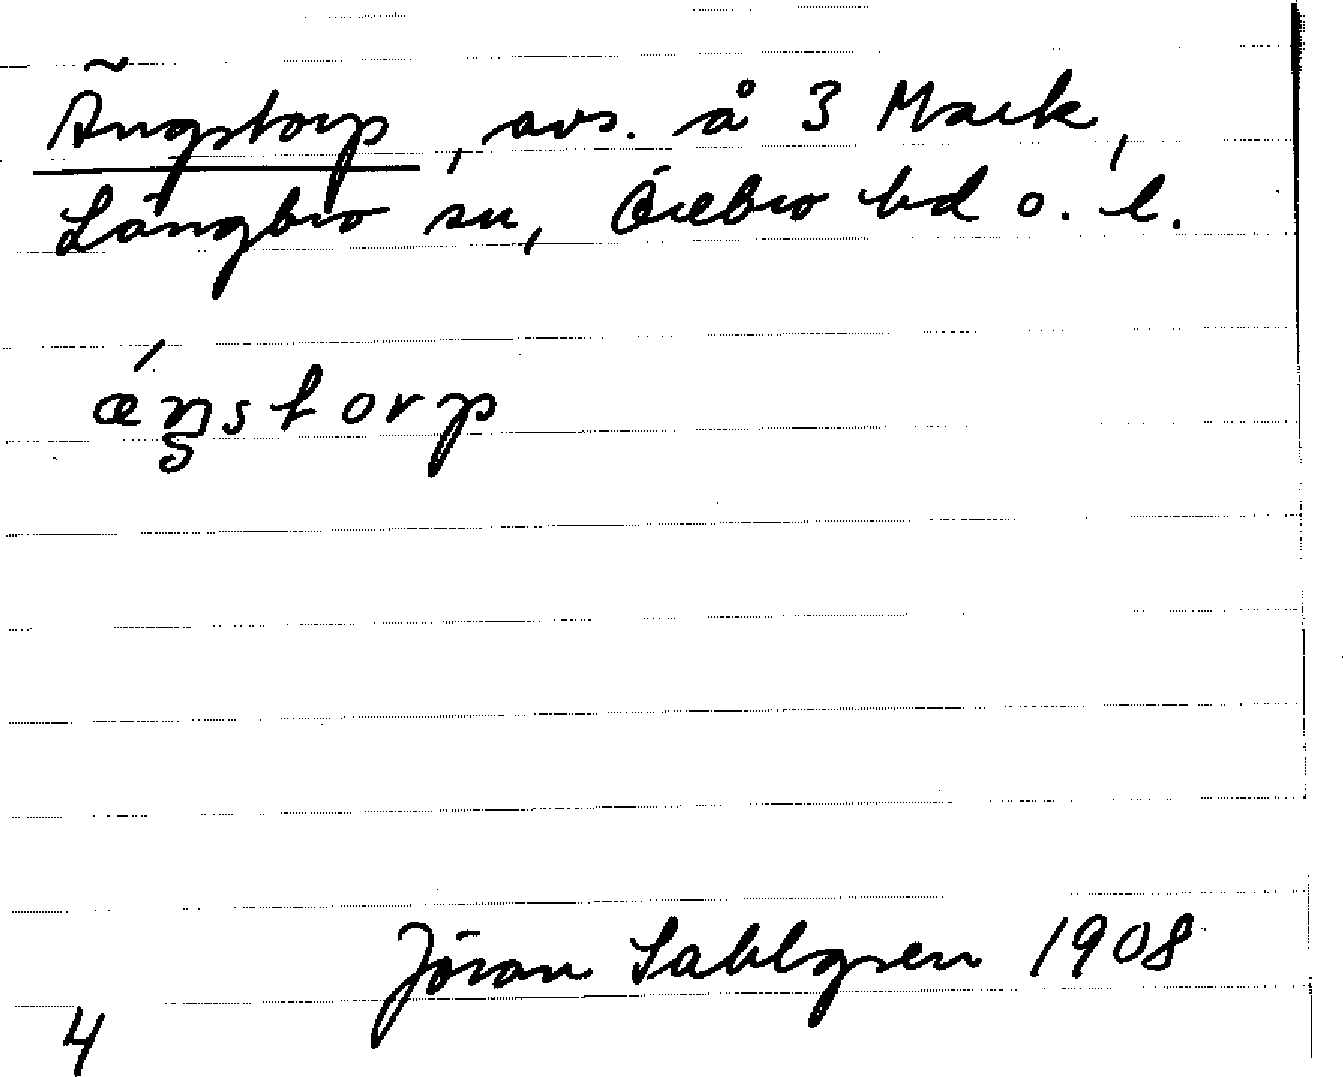 Ängstorp, avs. å 3 Mark,
Långbro sn, Örebro hd o. l.
ǽŋstorp
Jöran Sahlgren 1908
4